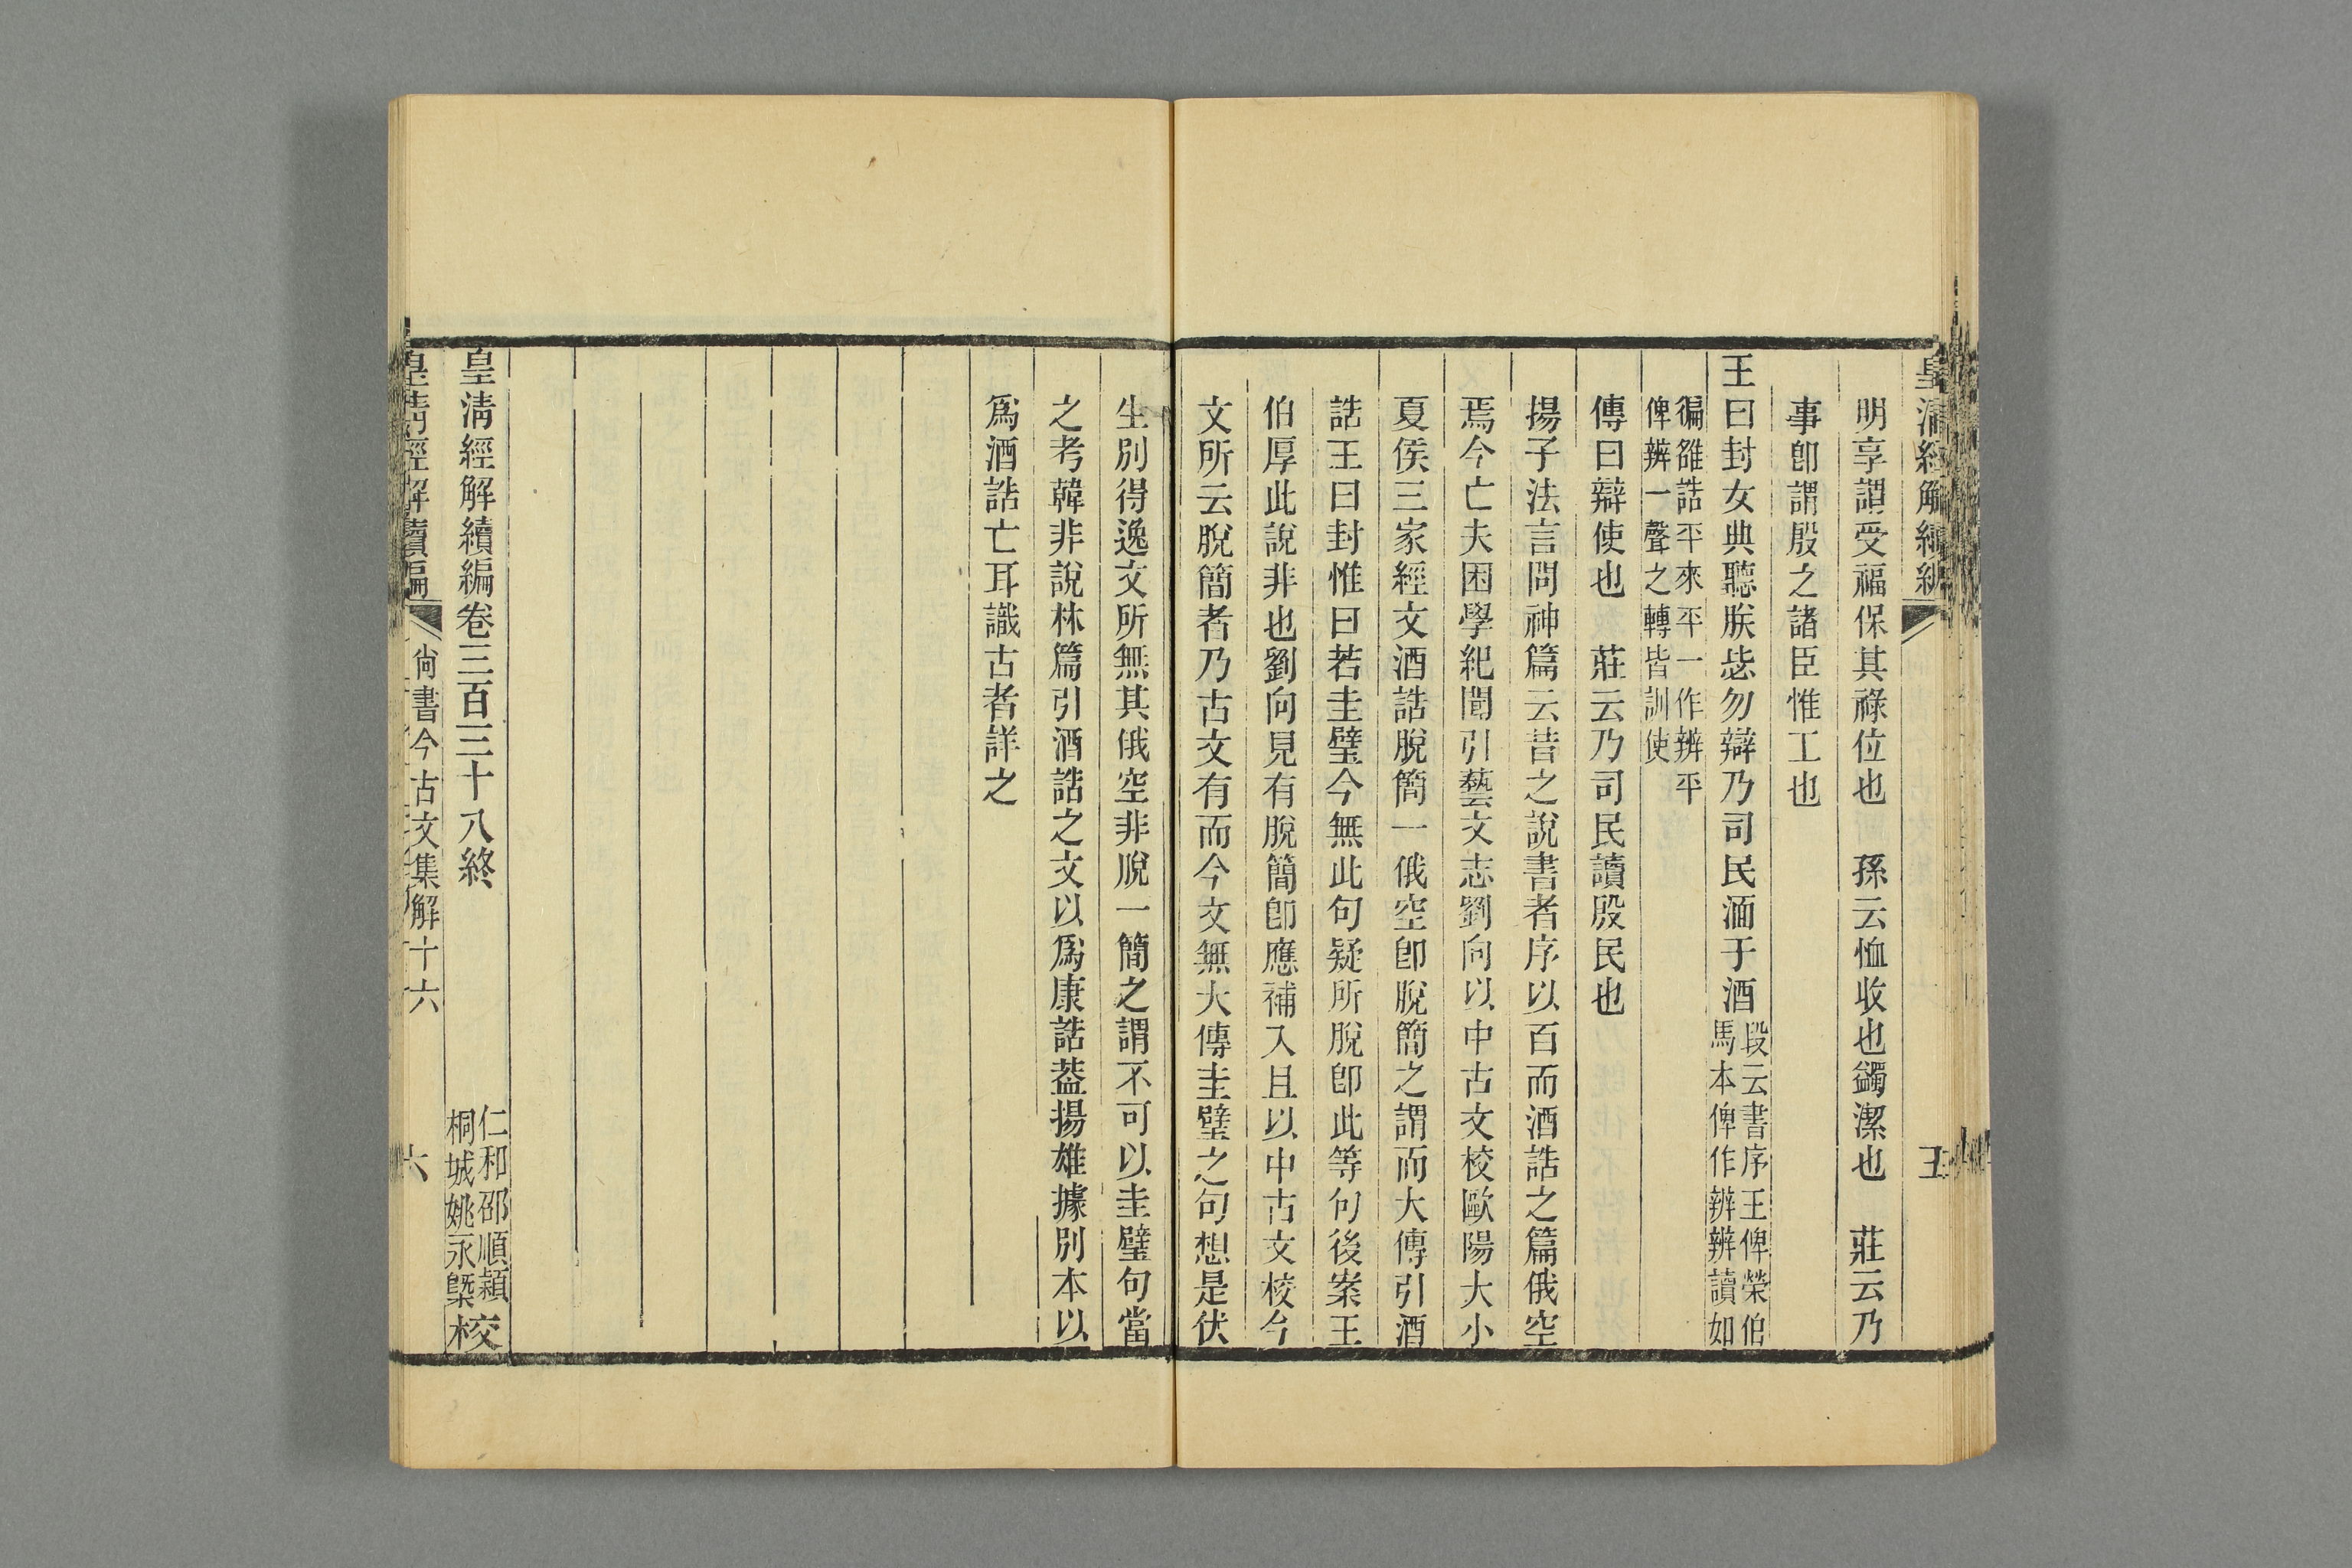 皇清經解續編
五
明享謂受福保其祿位也　孫云恤收也蠲潔也　莊云乃
事卽謂殷之諸臣惟工也
王曰封女典聽朕毖勿辯乃司民湎于酒
段云書序王俾榮伯
馬本俾作辨辨讀如
徧雒誥平來平一作辨平
俾辨一聲之轉皆訓使
傳曰辯使也　莊云乃司民讀殷民也
揚子法言問神篇云昔之說書者序以百而酒誥之篇俄空
焉今亡夫困學紀聞引藝文志劉向以中古文校歐陽大小
夏侯三家經文酒誥脫簡一俄空卽脫簡之謂而大傳引酒
誥王曰封惟曰若圭璧今無此句疑所脫卽此等句後案王
伯厚此說非也劉向見有脫簡卽應補入且以中古文校今
文所云脫簡者乃古文有而今文無大傳圭璧之句想是伏
生別得逸文所無其俄空非脫一簡之謂不可以圭璧句當
之考韓非說林篇引酒誥之文以爲康誥葢揚雄據別本以
爲酒誥亡耳識古者詳之
皇清經解續編卷三百三十八終
仁和邵順穎
桐城姚永槩
校
皇清經解續編
尙書今古文集解十六
六